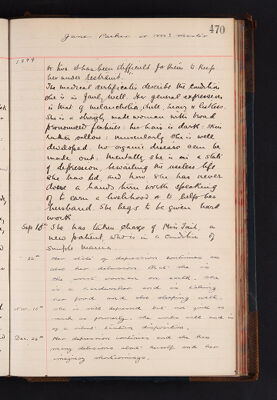 470
1899
or two it has been difficult for them to keep
her under restraint.
The medical certificates describe the condition
she is in fairly well. Her general expression
is that of melancholia, dull, heavy & listless.
She is a strong, made woman with broad
pronounced features: her hair is dark: skin
rather sallow: muscularly she is well
developed. No organic disease can be
made out. Mentally she is in a state
of depression, bewailing the useless life
she has led and how she has never
done a hands turn worth speaking
of to earn a livelihood or to help her
husband. She begs to be given hard
work.
Sep 18th She has taken charge of Miss Tait, a
new patient, who is in a condition of
simple mania.
Her state of depression continues as
also her delusion that she is
the worst woman on earth. She
is a hard worker and is taking
her food and also sleeping well.
Nov. 15th She is still depressed but not quite so
much as formerly. She works well and is
of a disposition.
Dec. 24th Her depression continues and she has
many delusions about herself and her
imaginary shortcomings.